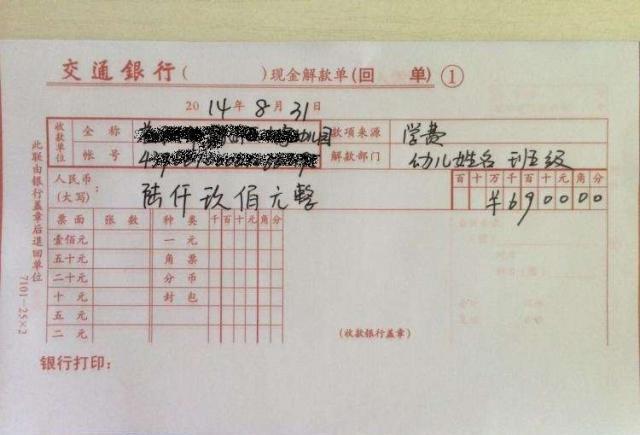 交通銀行(    )现金解款单(回 单) ①
2014年8月31日
收款单位 全称 幼儿园 款项来源 学费
帐号 解款部门 幼儿姓名 班级
人民币(大写): 陆仟玖佰元整 百十万千百十元角分
¥690000
票面 张数 种类 千百十元角分
壹佰元 一元
五十元 角票
二十元 分币
十元 封包
五元
二元
(收款银行盖章)
银行打印:
此联由银行盖章后退回单位
7101-25×2